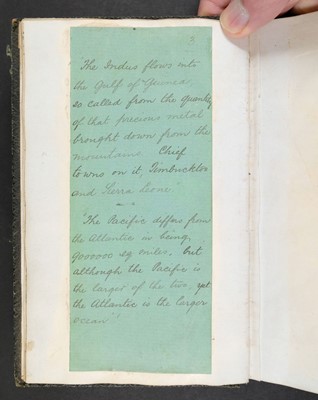 3
"The Indus flows into
the Gulf of Guinea,
so called from the quantity
of that precious metal
brought down from the
mountains. Chief
towns on it, Timbucktoo
and Sierra Leone."
"The Pacific differs from
the Atlantic in being,
9000000 sq miles, but
although the Pacific is
the larger of the two, yet
the Atlantic is the larger
ocean"